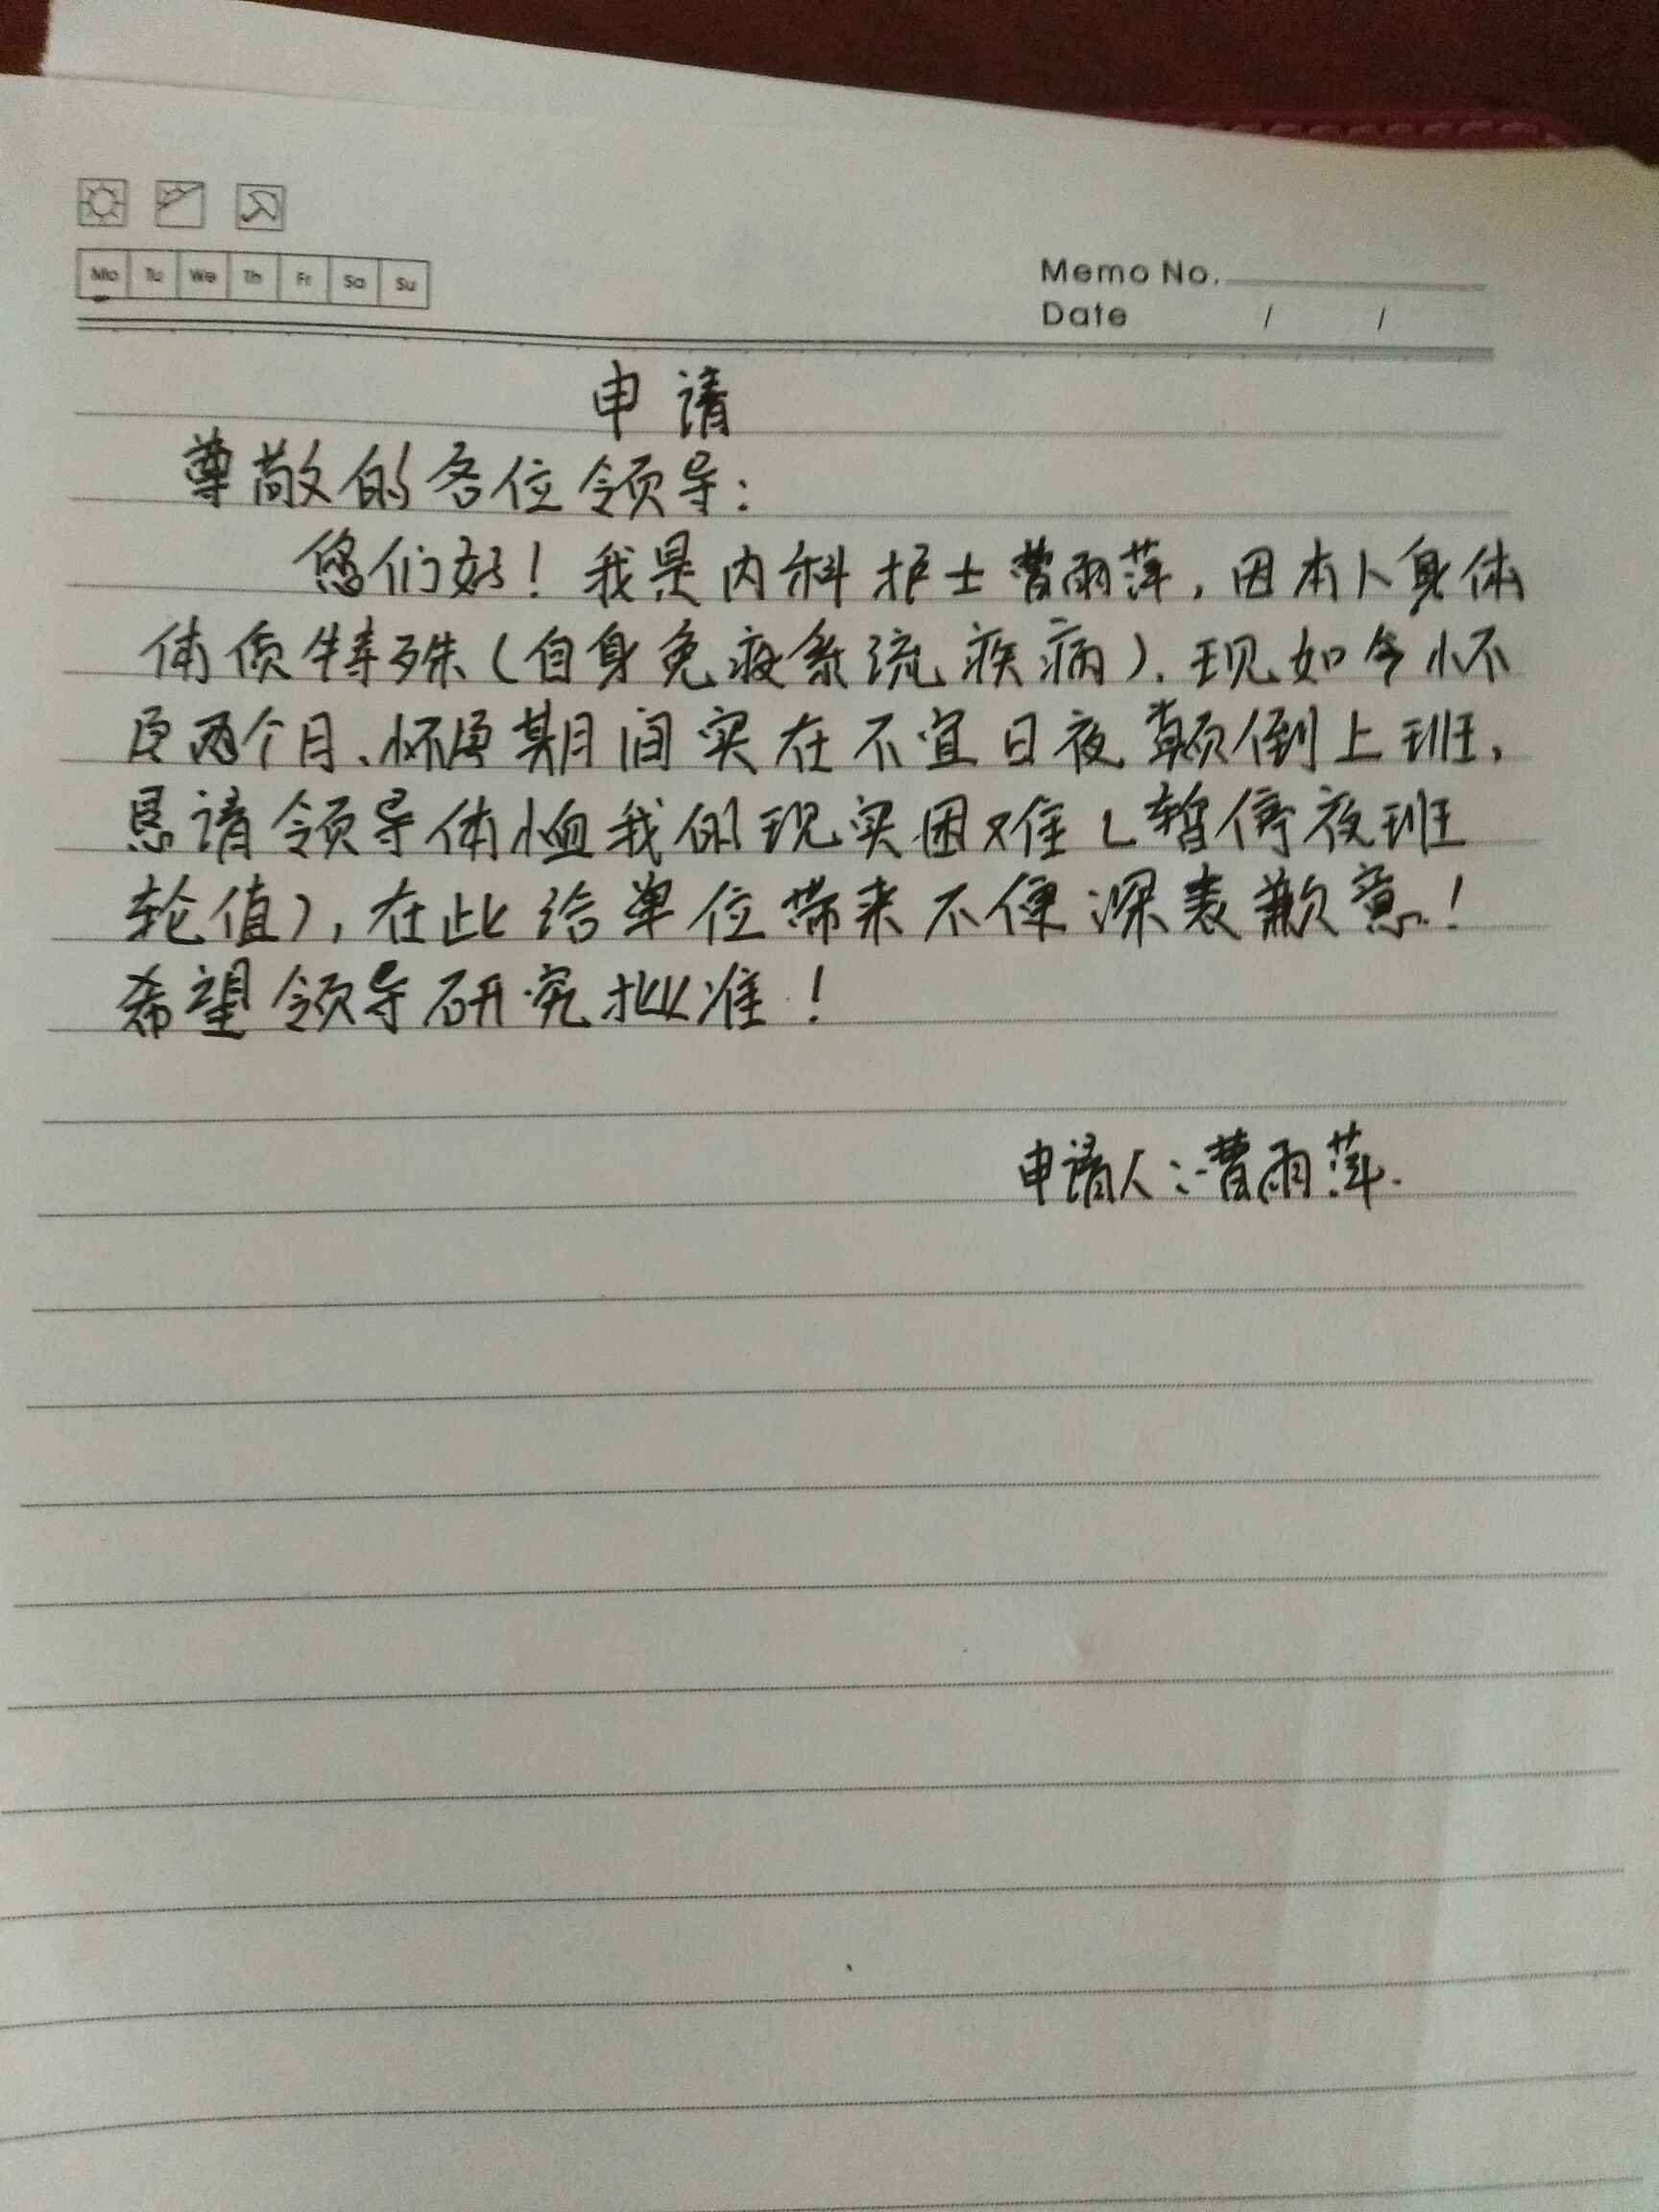 Mo Tu We Th Fr Sa Su
Memo No.
Date / /
申请
尊敬的各位领导：
您们好！我是内科护士曹雨萍，因本人身体
体质特殊（自身免疫系流疾病）．现如今怀
孕两个月、怀孕期间实在不宜日夜颠倒上班，
恳请领导体恤我的现实困难（暂停夜班
轮值），在此给单位带来不便深表歉意！
希望领导研究批准！
申请人：曹雨萍．